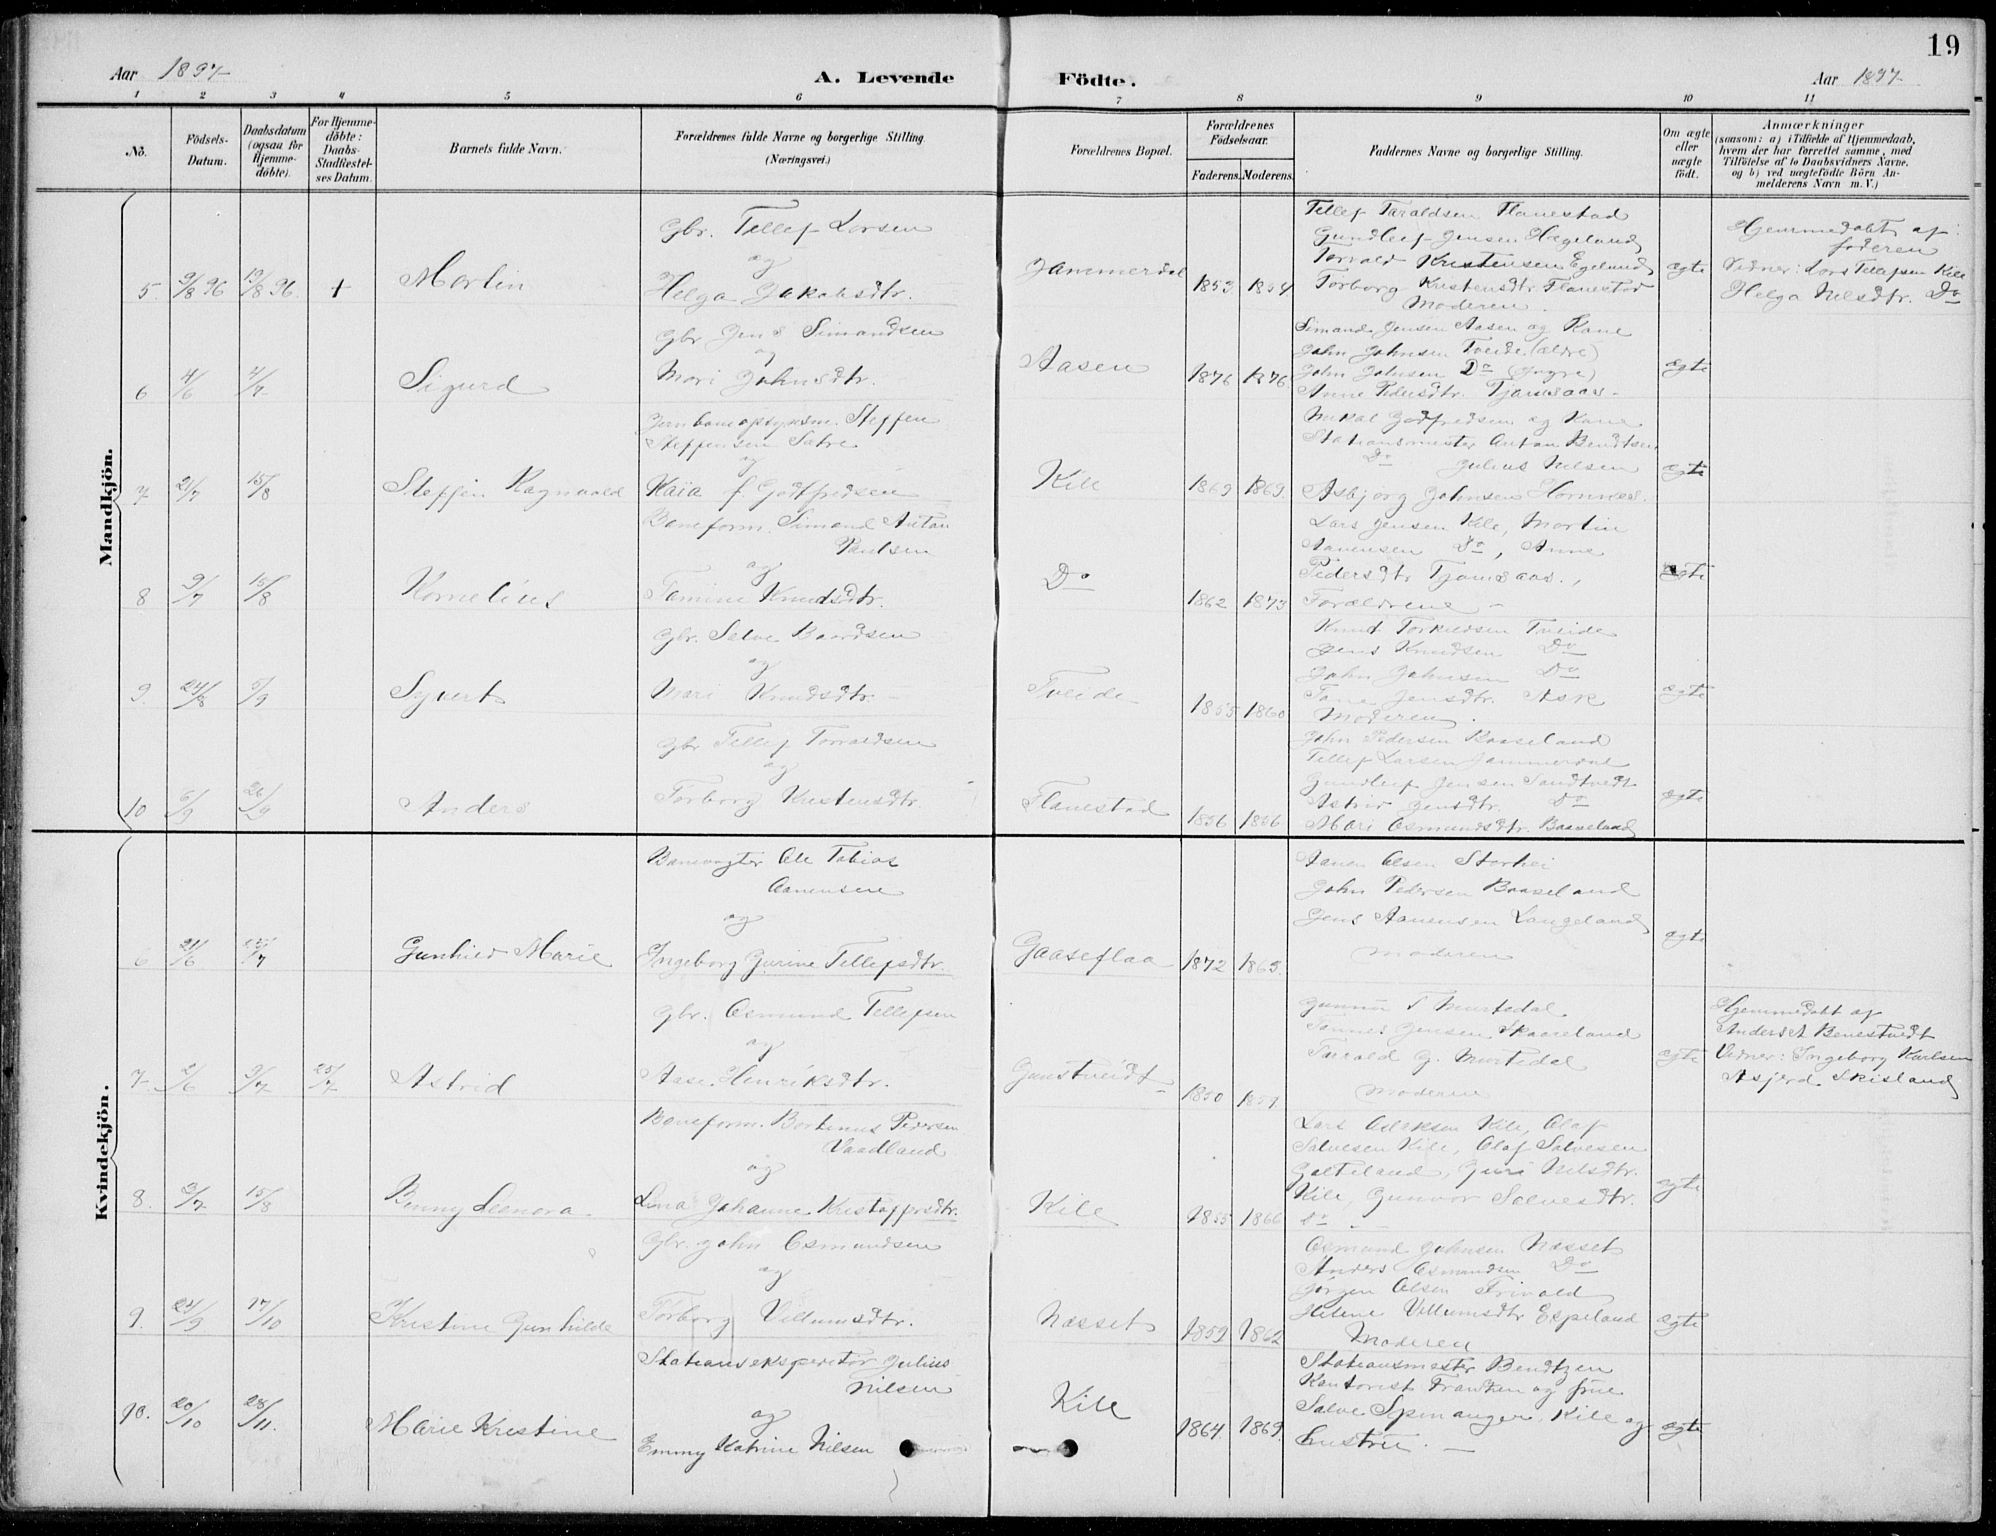 19
Aar 1897
A. Levende Fødte.
Aar 1897
1 2 3 4 5 6 7 8 9 10 11
No.
Fødsels-Datum.
Daabsdatum (ogsaa for Hjemme-døbte).
For Hjemme-døbte: Daabs-Stadfæstel-ses Datum.
Barnets fulde Navn.
Forældrenes fulde Navne og borgerlige Stilling. (Næringsvei.)
Forældrenes Bopæl.
Forældrenes Fødselsaar.
Faderens. Moderens.
Faddernes Navne og borgerlige Stilling.
Om ægte eller uægte født.
Anmærkninger
(saasom: a) i Tilfælde af Hjemmedaab,
hvem der har forrettet samme, med
Tilføielse af to Daabsvidners Navne.
og b) ved uægtefødte Børn An-
melderens Navn m. V.)
Mandkjön.
5. 9/8 96 19/8 96. + Martin
Gbr. Tellef Larsen
og
Helga Jakobsdtr.
Jammerdal 1853 1854
Tellef Taraldsen Flanestad
Gundleif Jensen Hægeland
Torvald Kristensen Egeland
Torborg Kristensdtr. Flanestad
Moderen.
ægte
Hjemmedøbt af
faderen
Vidner: Lars Tellefsen Kile
Helga Nilsdtr. Do
6 4/6 4/7 Sigurd
Gbr Jens Simondsen
og
Mari Johnsdtr.
Aasen 1876 1876
Simond Jensen Aasen og Kone
John Johnsen Tveide (ældre)
John Johnsen Do (yngre)
Anne Pedersdtr. Tjomsaas.
ægte
7 21/7 15/8 Steffen Ragnvald
Jernbaneopsynsm. Steffen
Steffensen Sætre
og
Kaia f. Godtfredsen
Kile 1869 1869.
Mikal Godfredsen og Kone
Stationsmester Anton Bendtsen
Do Julius Nilsen
Asbjorg Johnsen Hornnæs.
ægte
8 9/7 15/8 Kornelius
Baneform. Simond Anton
Paulsen
og
Tomine Knudsdtr.
Do 1862 1873
Lars Jensen Kile, Martin
Aanensen Do, Anne
Pedersdtr Tjomsaas.,
Forældrene
ægte
9. 24/8 5/9 Syvert
Gbr. Salve Baardsen
og
Mari Knudsdtr.
Tveide 1855 1860
Knut Torkildsen Tveide
Jens Knudsen Do
John Johnsen Do
Tone Jensdtr. Ask
Moderen.
ægte
10 6/9 26/9 Anders
Gbr Tellef Torvaldsen
og
Torborg Kristensdtr.
Flanestad 1856 1856
John Pedersen Baaseland
Tellef Larsen Jammerdal
Gundleif Jensen Sandtvedt
Astrid Jensdtr. Do
Mari Osmundsdtr. Baaseland
ægte
Kvindekjön.
6 21/6 /7 Gunhild Marie
Banevogter Ole Tobias
Aanensen
og
Ingeborg Gurine Tellefsdtr.
Gaaseflaa 1872 1865.
Aanen Olsen Storhei
John Pedersen Baaseland
Jens Aanensen Langeland
Moderen
ægte
7 2/6 9/7 25/7 Astrid
Gbr. Osmund Tellefsen
og
Aase Henriksdtr.
Gunstveidt 1850 1859
Gunnu T Murtedal
Tønnes Jensen Skaareland
Tarald G. Murtedal
Moderen
ægte
Hjemmedøbt af
Anders A Benestvedt
Vidner: Ingeborg Karlsen
Asjerd Skisland
8. 3/7 15/8 Benny Leonora
Baneform. Bertinus Pedersen
Vaadland
og
Lina Johanne Kristoffersdtr.
Kile 1855 1866
Lars Aslaksen Kile, Olaf
Salvesen Kile, Olaf Salvesen
Galteland, Guri Nilsdtr.
Kile, Gunvor Salvesdtr.
Do
ægte
9. 24/9 17/10 Kristine Gunhilde
Gbr. John Osmundsen
og
Torborg Villumsdtr.
Næsset 1859 1862
Osmund Johnsen Næsset
Anders Osmundsen Do
Jørgen Olsen Frivold
Helene Villumsdtr Espeland
Moderen
ægte
10. 20/10 28/11. Marie Kristine
Stationsekspeditør Julius
Nilsen
og
Emmy Katrine Nilsen
Kile 1864. 1869.
Stationsmester Bendtzen
Kontorist Frantzen og frue
Salve Spenanger, Kile og
hustru.
ægte